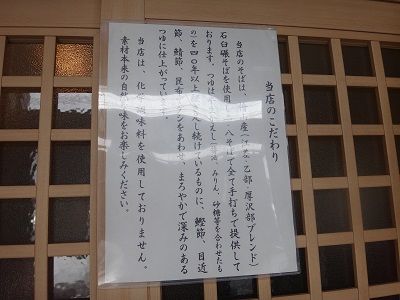 当店のこだわり
当店のそばは、産(江差・乙部・厚沢部ブレンド)
石臼碾そばを使用 八そばで全て手打ちで提供して
おります。つゆは えし(油、みりん、砂糖等を合わせたも
の)を四〇年以上 し続けているものに、鰹節、目近
節、鯖節、昆布 ダシをあわせ、まろやかで深みのある
つゆに仕上がってい
当店は、化 味料を使用しておりません。
素材本来の自然 味をお楽しみください。